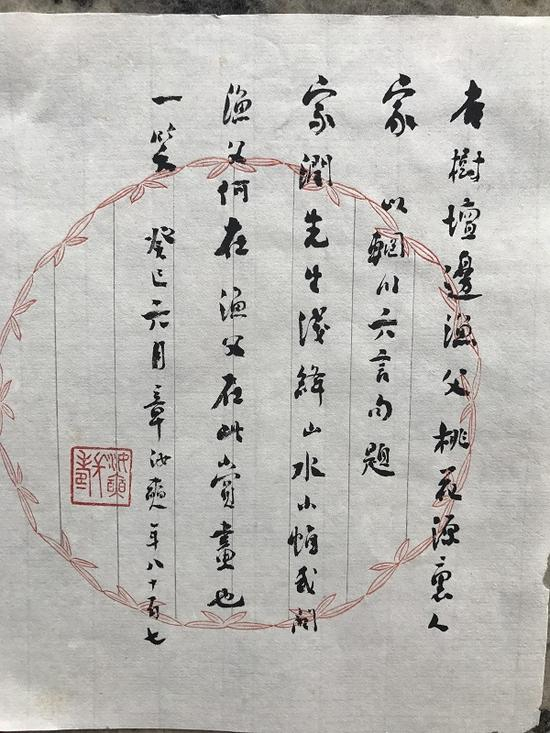 杏樹壇邊漁父桃花源裏人
家 以輞川六言句題
家潤先生淺絳山水小幀或問
漁父何在漁父在此賞畫也
一笑 癸巳六月章汝奭年八十有七
汝奭